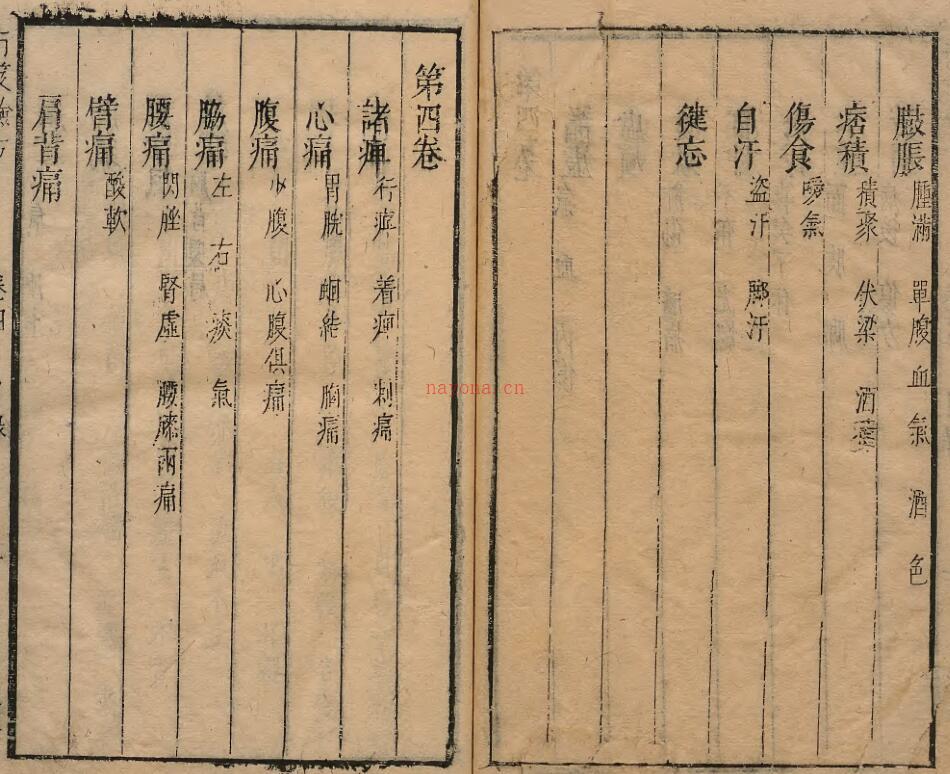 臌脹 腫滿 單腹 血 氣 酒 色
痞積 積聚 伏梁 酒
傷食 噯氣
自汗 盜汗 腳汗
健忘
第四卷
諸痺 行痺 着痺 刺痛
心痛 胃脘 蛔結 胸痛
腹痛 小腹 心腹俱痛
脇痛 左 右 痰 氣
腰痛 閃挫 腎虛 腰膝兩痛
臂痛 酸軟
肩背痛
nayona.cn